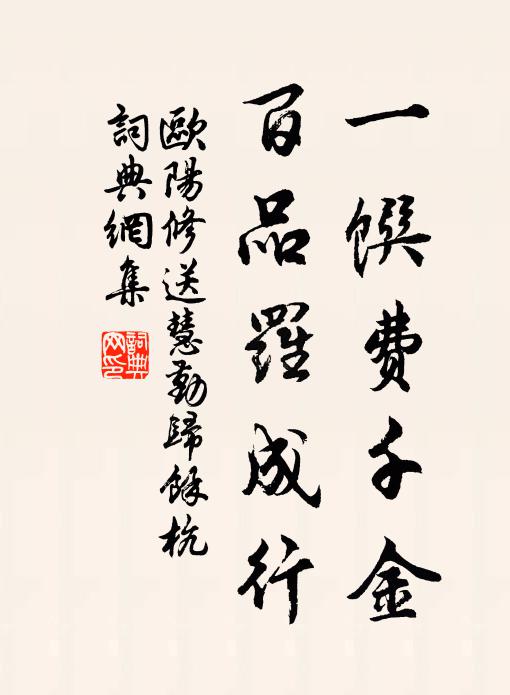 一饌費千金
百品羅成行
歐陽修送慧勤歸餘杭
詞典網集
詞典
网印